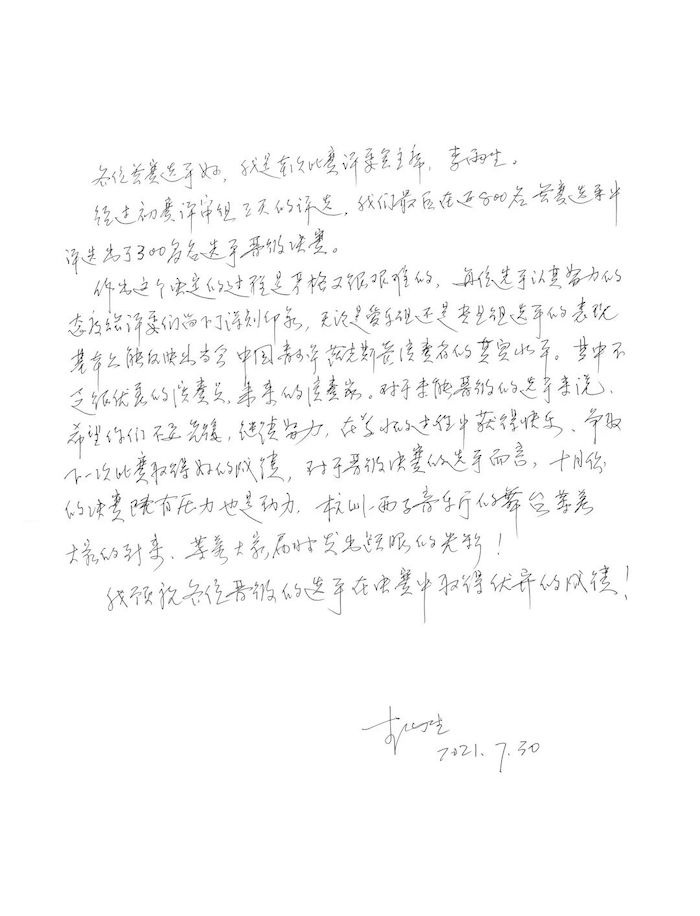 各位参赛选手好，我是本次比赛评委会主席，李雨生。
经过初赛评审组三天的评选，我们最后在近800名参赛选手中
评选出了300多名选手晋级决赛。
作出这个决定的过程是严格又很艰难的，每位选手认真努力的
态度给评委们留下了深刻印象，无论是爱乐组还是专业组选手的表现
基本上能反映出当今中国青少年萨克斯管演奏者的真实水平。其中不
乏很优秀的演奏员、未来的演奏家。对于未能晋级的选手来说，
希望你们不要气馁，继续努力，在学习的过程中获得快乐、争取
下一次比赛取得好的成绩，对于晋级决赛的选手而言，十月份
的决赛既有压力也是动力，杭州－西子音乐厅的舞台等着
大家的到来、等着大家届时发出耀眼的光彩！
我预祝各位晋级的选手在决赛中取得优异的成绩！
李雨生
2021.7.30